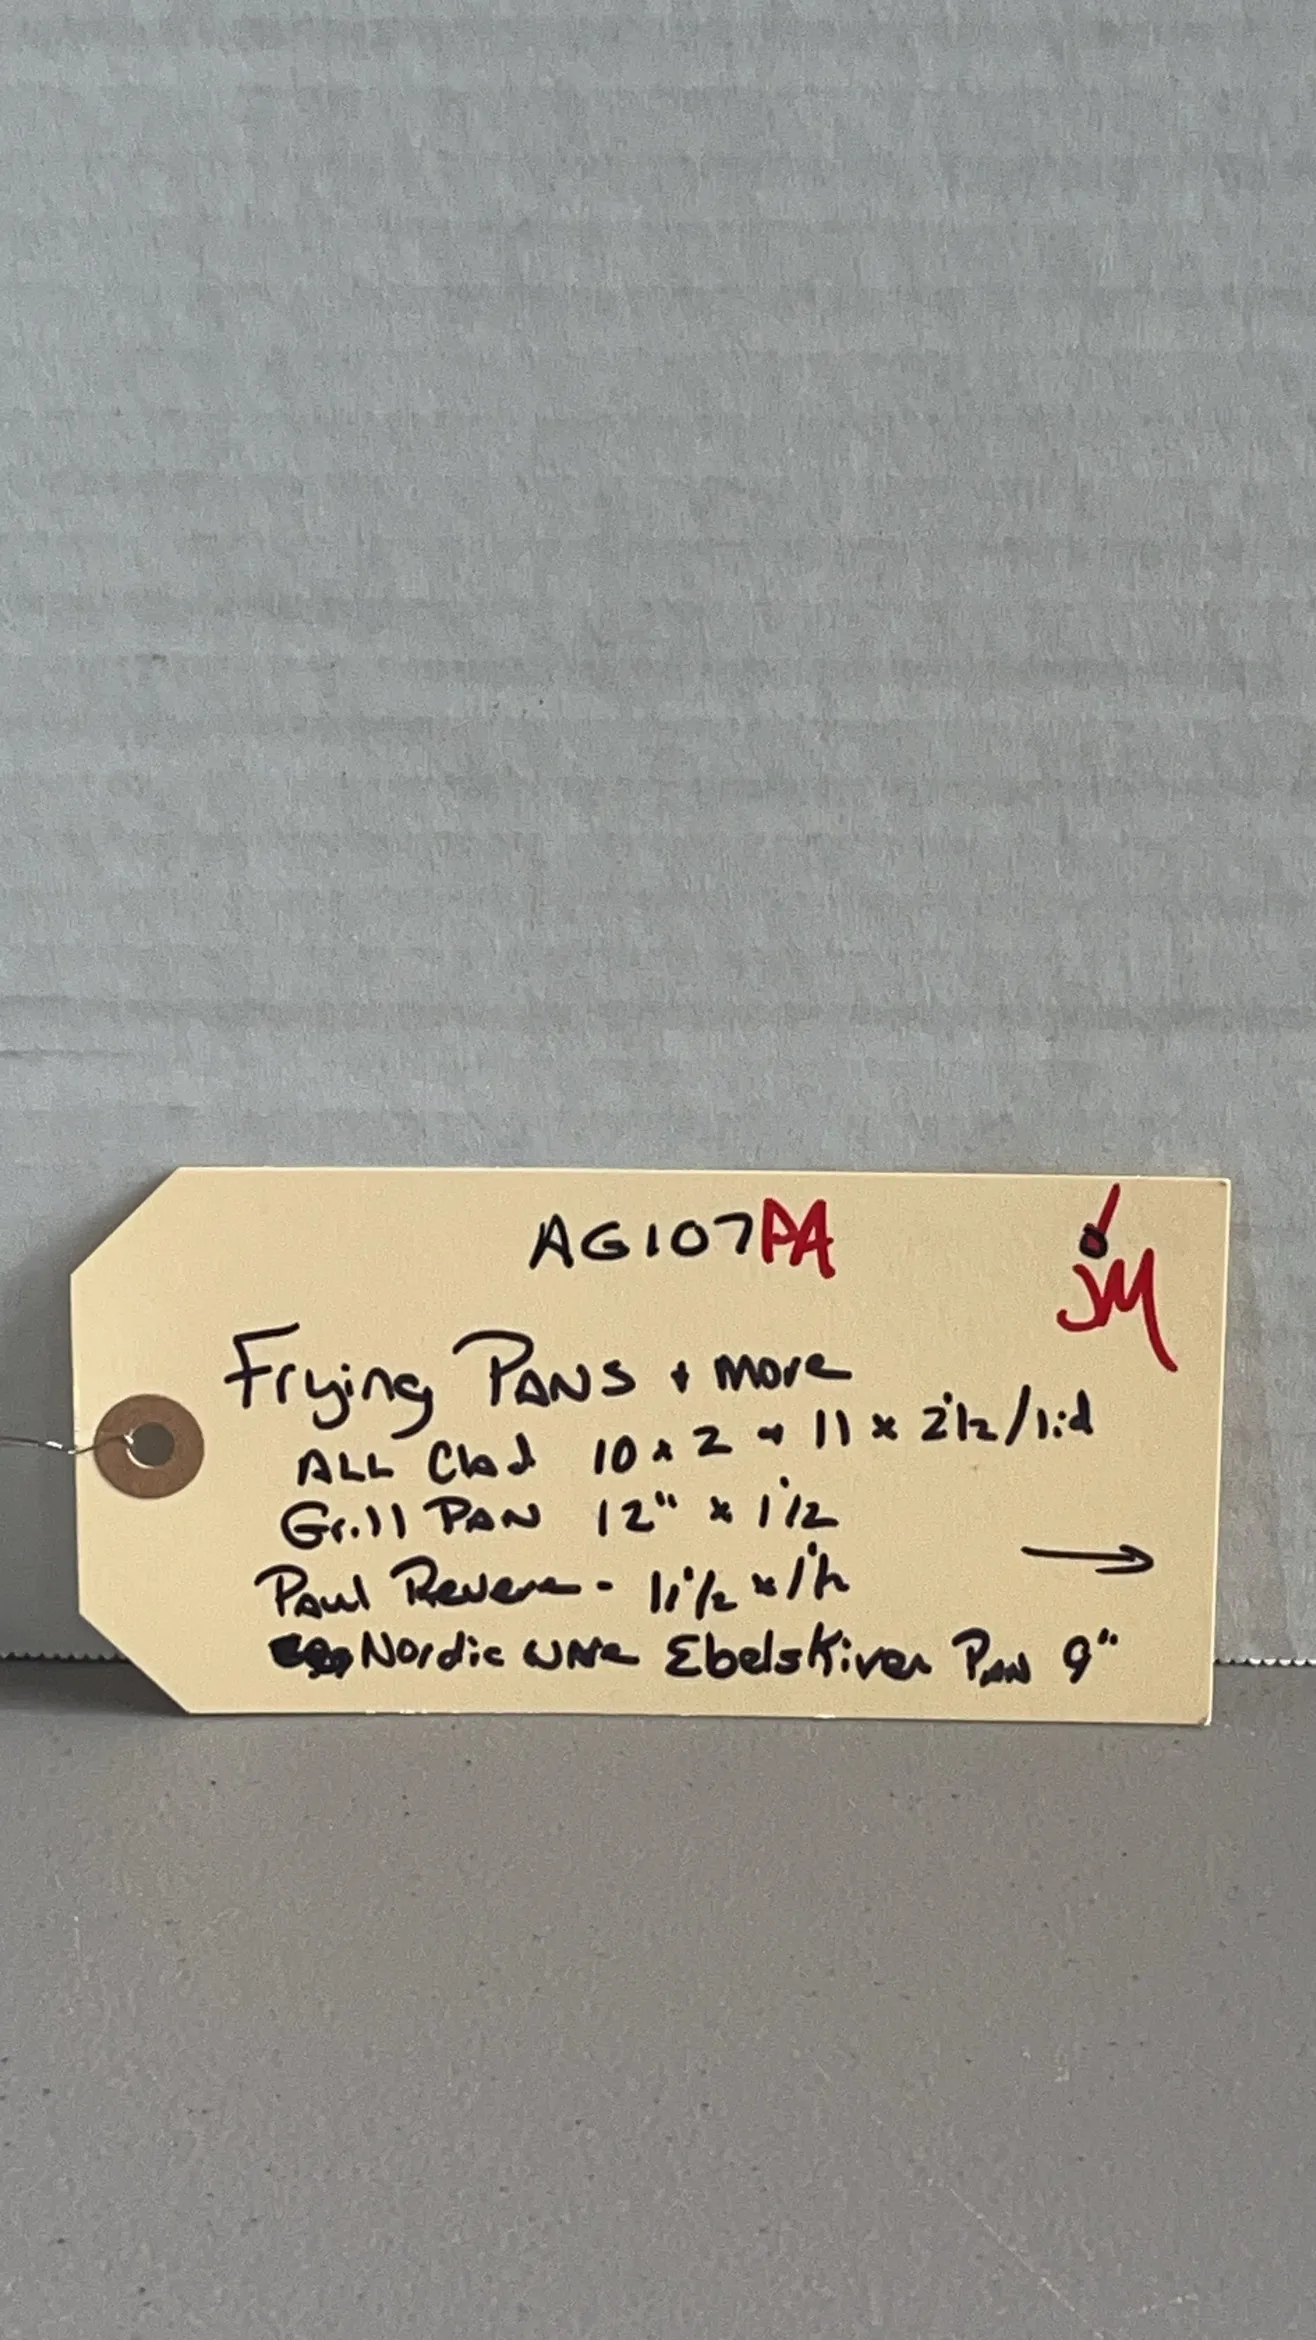 AG107PA
JM
Frying PANS + more
ALL Clad 10 x 2 + 11 x 2 1/2 / lid
Grill PAN 12" x 1 1/2
Paul Revere - 11 1/2 x 1 1/2
Nordic ware Ebelskiver Pan 9"